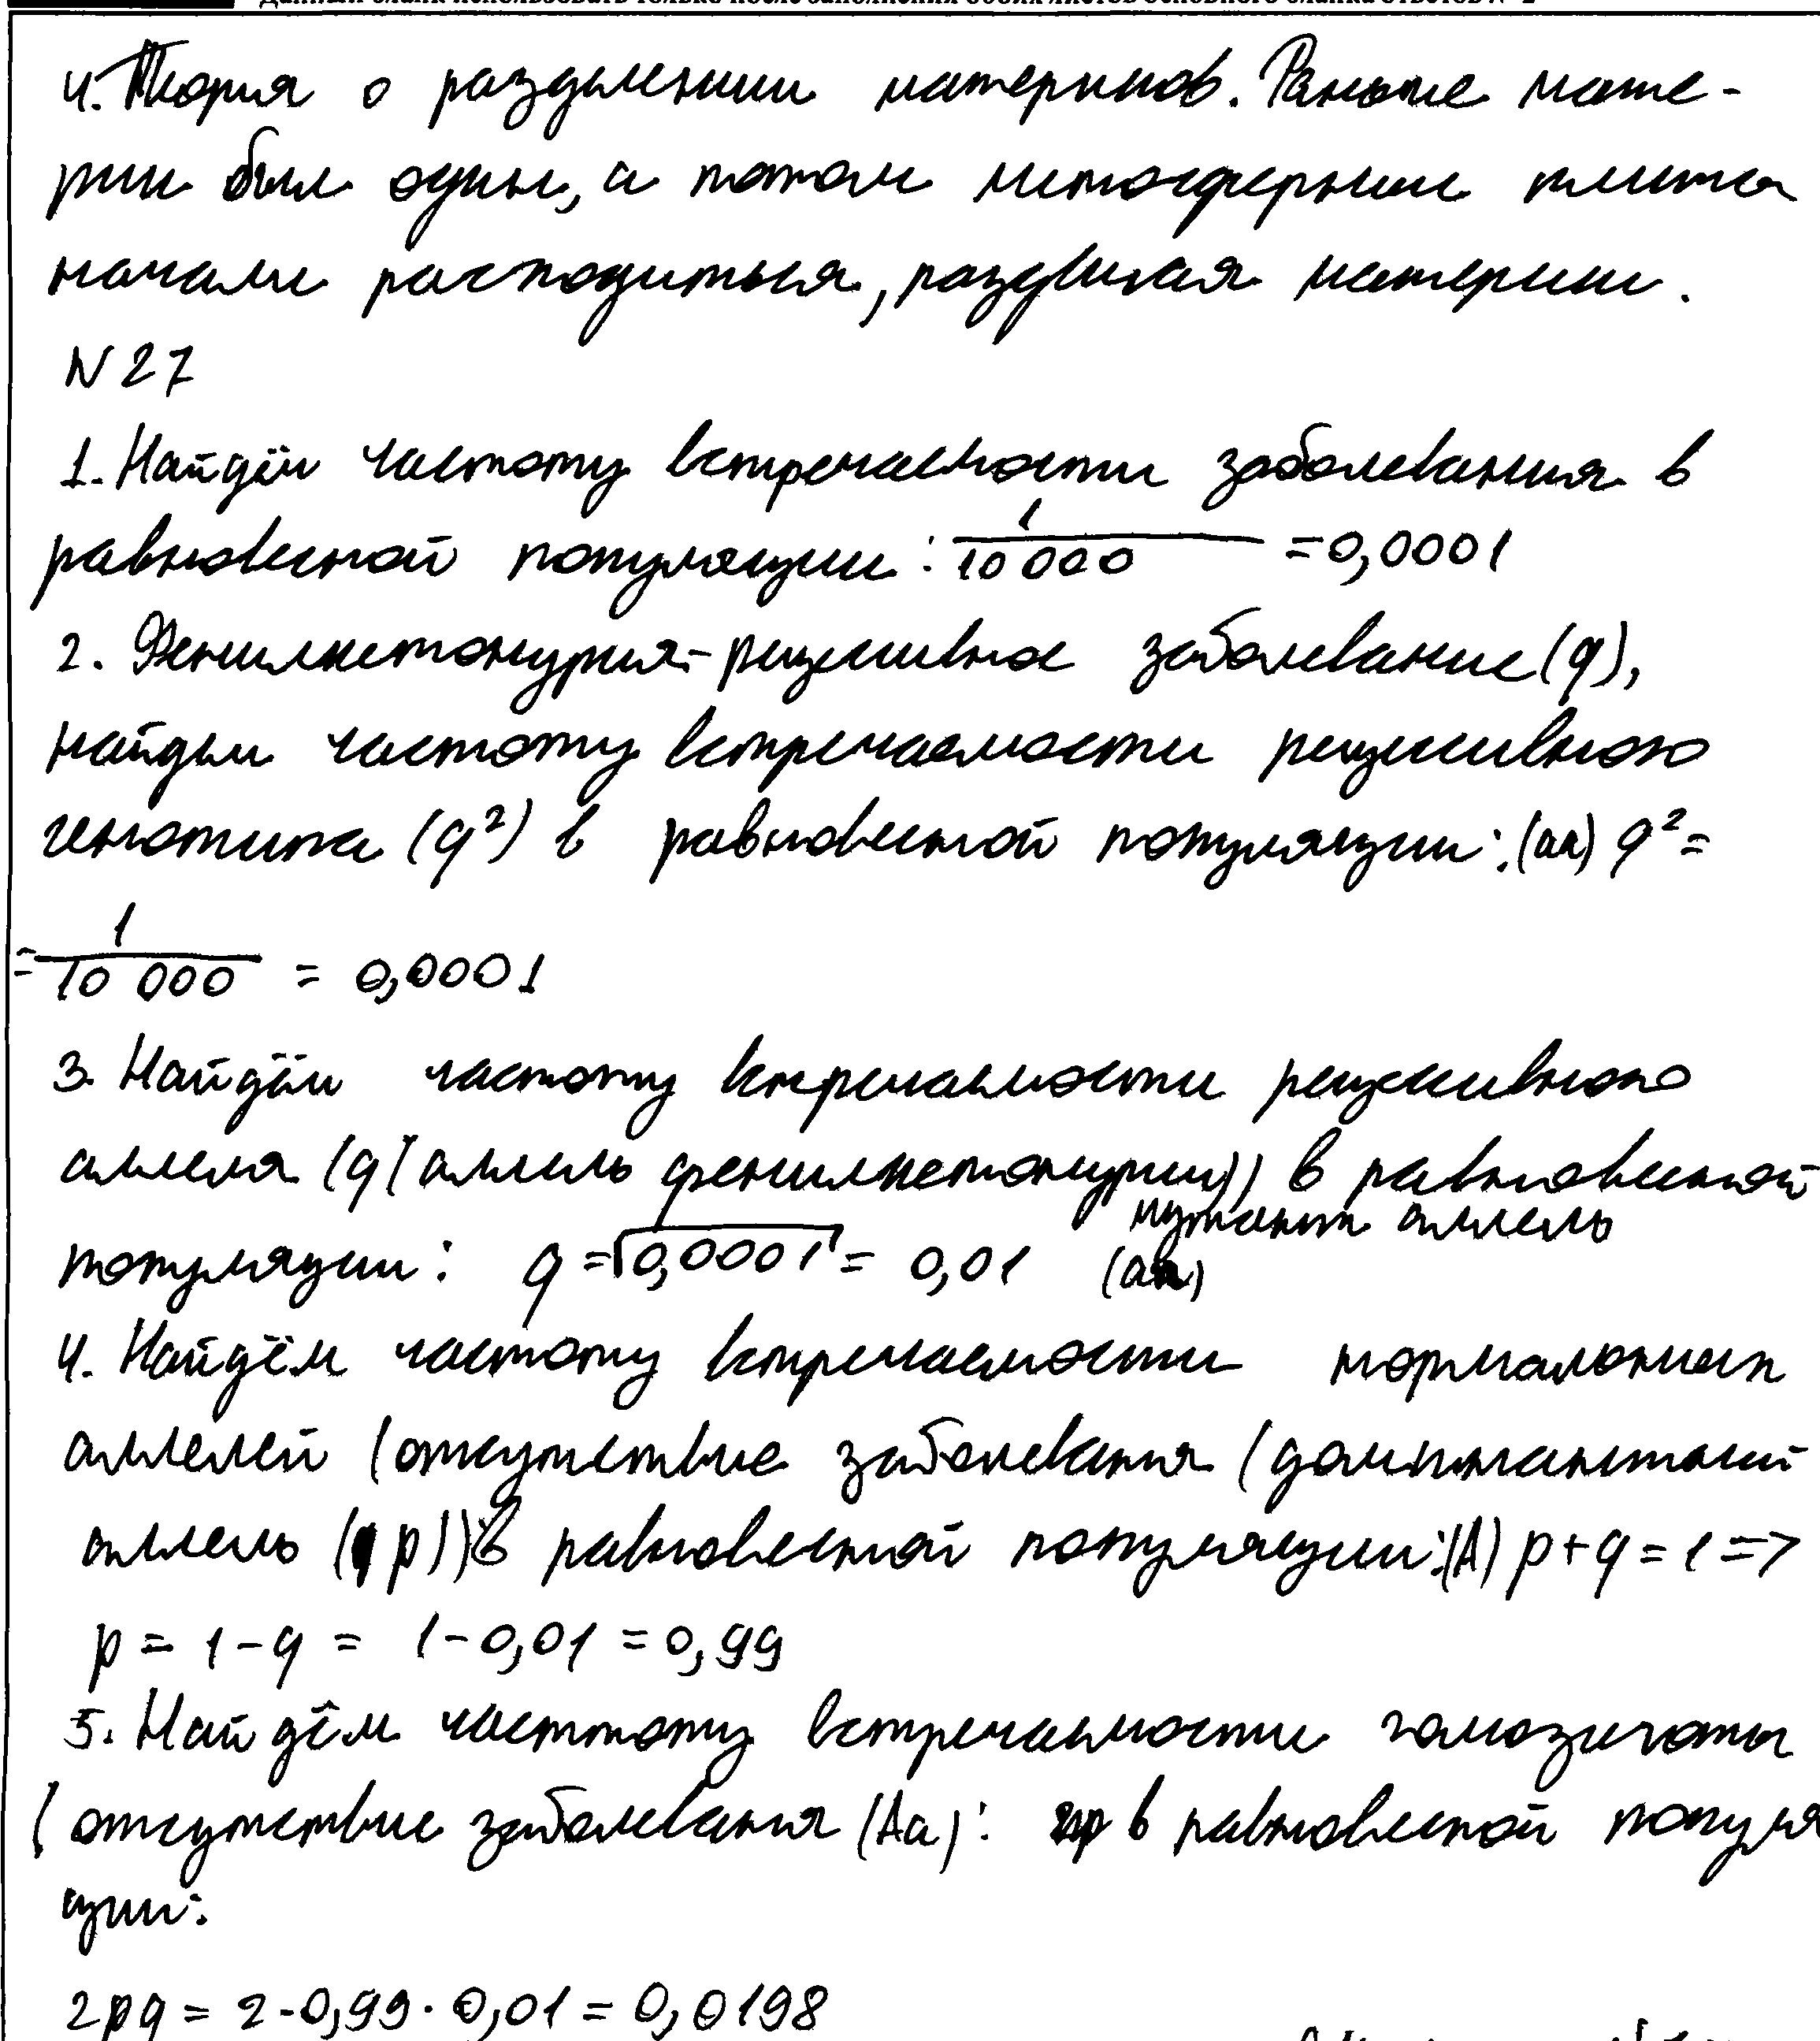 Данный бланк использовать только после заполнения обоих листов основного бланка ответов № 2
4. Теория о разделении материков. Раньше мате-
рик был один, а потом литосферные плиты
начали расходиться, раздвигая материки.
N 27
1. Найдём частоту встречаемости заболевания в
равновесной популяции: 1/10 000 = 0,0001
2. Фенилкетонурия - рецессивное заболевание (q),
найдем частоту встречаемости рецессивного
генотипа (q²) в равновесной популяции: (aa) q² =
= 1/10 000 = 0,0001
3. Найдём частоту встречаемости рецессивного
аллеля (q (аллель фенилкетонурии)) в равновесной
мутант аллель
популяции: q = √0,0001 = 0,01 (a)
4. Найдём частоту встречаемости нормальных
аллелей (отсутствие заболевания (доминантный
аллель (p)) в равновесной популяции: (A) p + q = 1 =>
p = 1 - q = 1 - 0,01 = 0,99
5. Найдём частоту встречаемости гомозиготы
(отсутствие заболевания (Aa): в равновесной популя
ции:
2pq = 2 · 0,99 · 0,01 = 0,0198